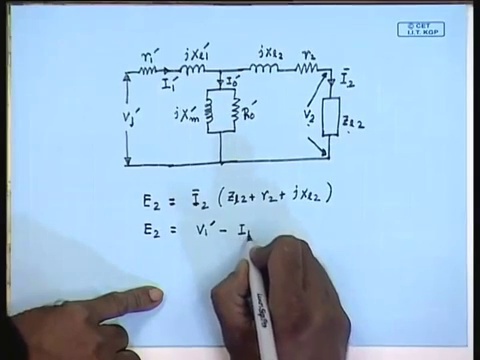 © CET
I.I.T. KGP
r₁′ jXₗ₁′ jXₗ₂ r₂
I₁′ I₀′ Ī₂
V₁′ jX′ₘ R₀′ V₂ Zₗ₂
E₂ = Ī₂ (Zₗ₂ + r₂ + jxₗ₂)
E₂ = V₁′ − I₁